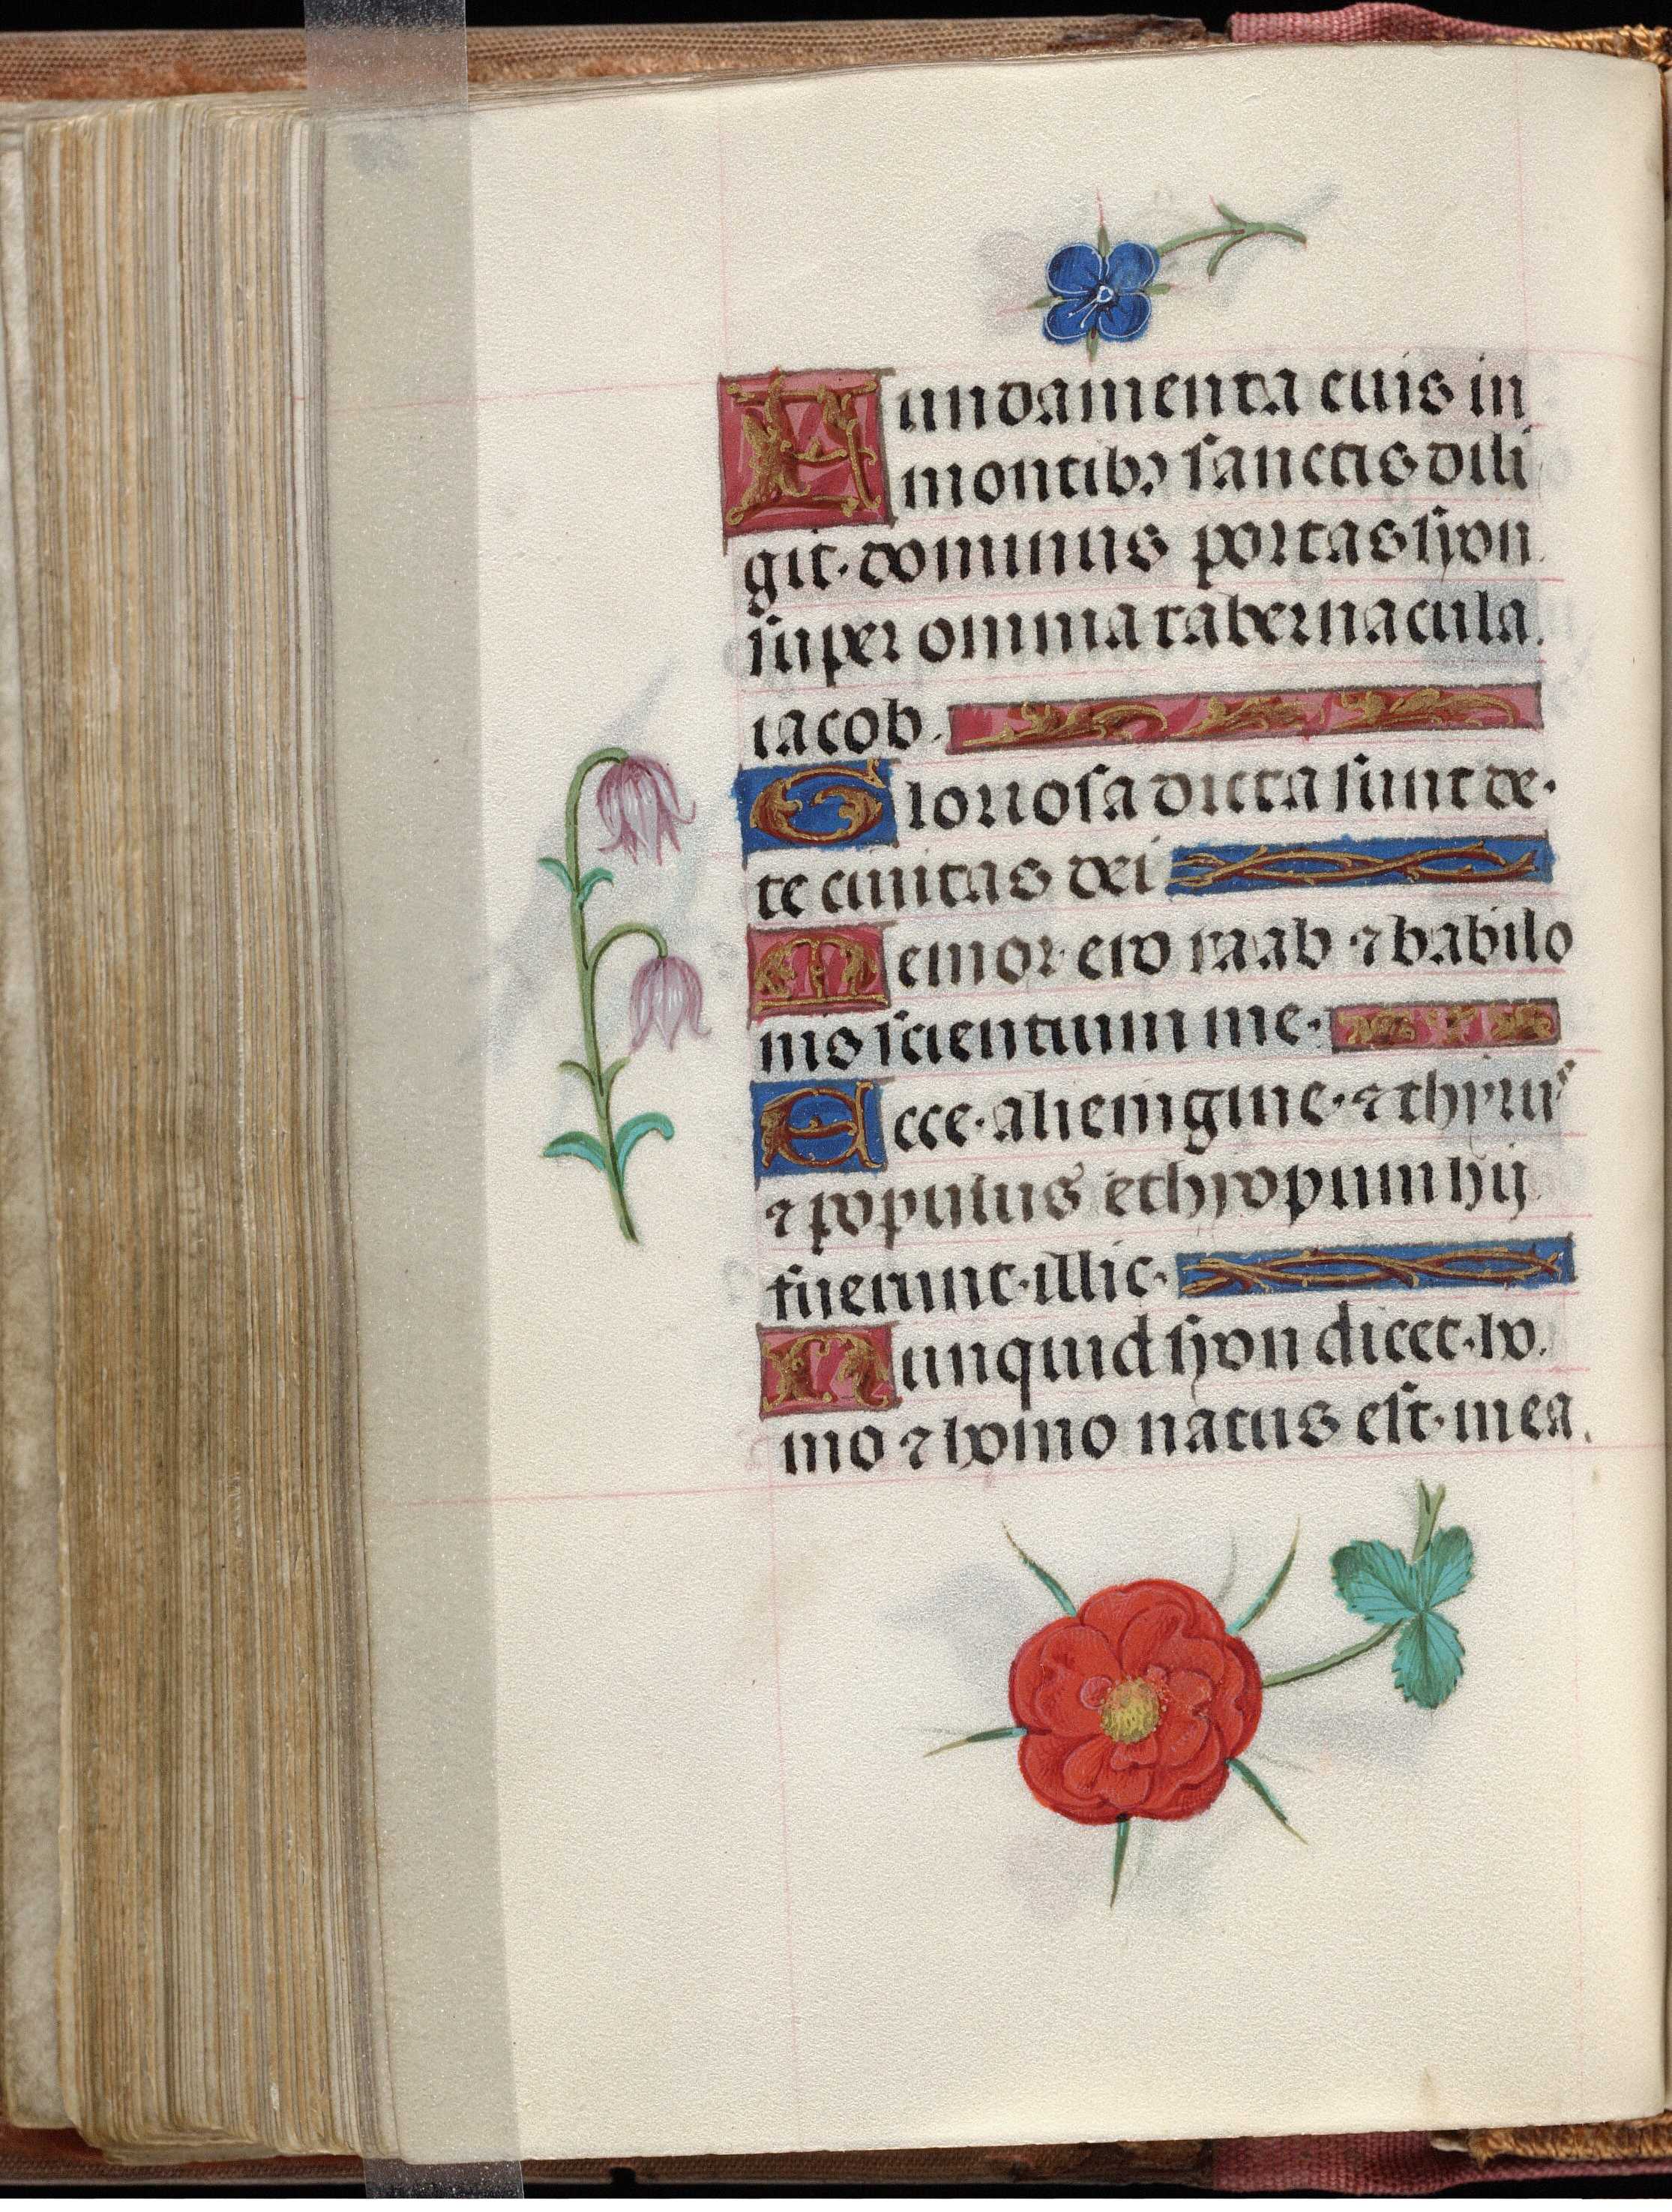 Fundamenta euis in
montibꝫ sanctis dili
git. dominus portas syon
super omnia tabernacula.
iacob.
Gloriosa dicta sunt de.
te ciuitas dei
Memor ero raab ⁊ babilo
nis scientium me.
Ecce. alienigine. ⁊ thyrus
⁊ populus ethyopum hij
fuerunt. illic.
Nunquid syon dicet. ho.
mo ⁊ homo natus est. mea.